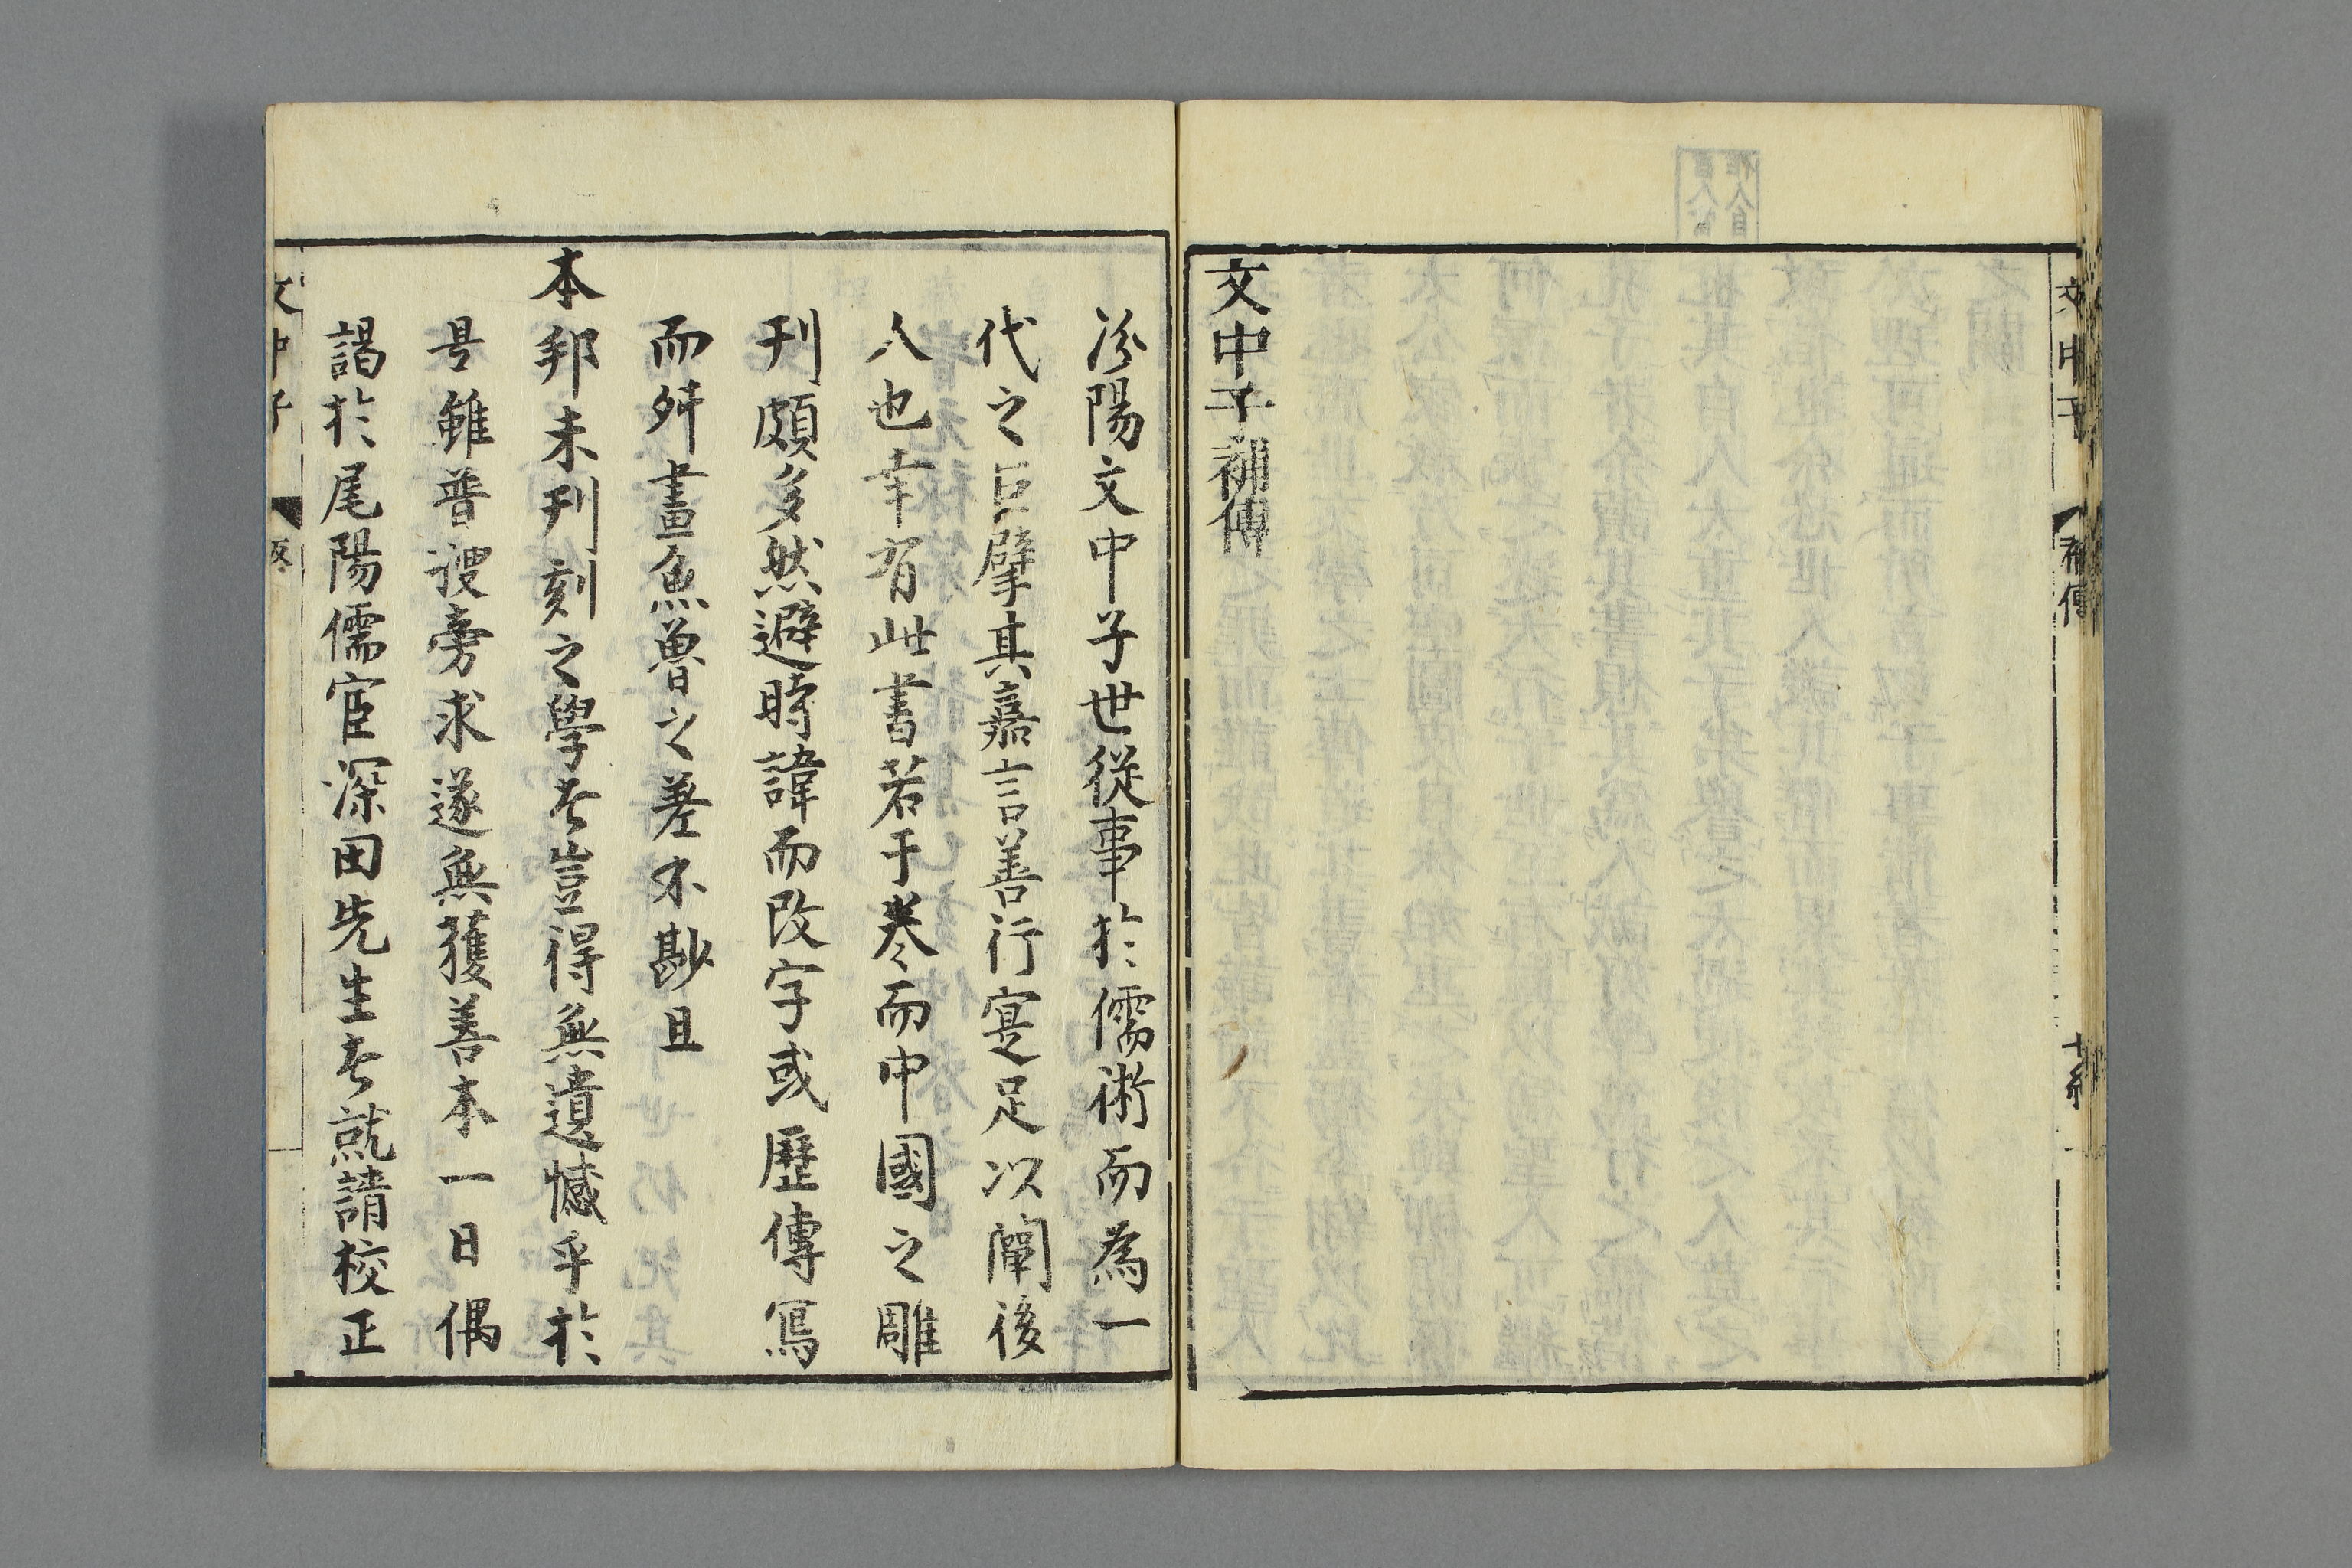 文中子
補傳
文中子補傳
汾陽文中子世從事於儒術而為一
代之巨擘其嘉言善行寔足以闡後
人也幸有此書若干卷而中國之雕
刊頗多然避時諱而改字或歷傳寫
而舛畫魚魯之差不尠且
本邦未刊刻之學者豈得無遺憾乎於
是雖普謏旁求遂無獲善本一日偶
謁於尾陽儒官深田先生者就請校正
文中子